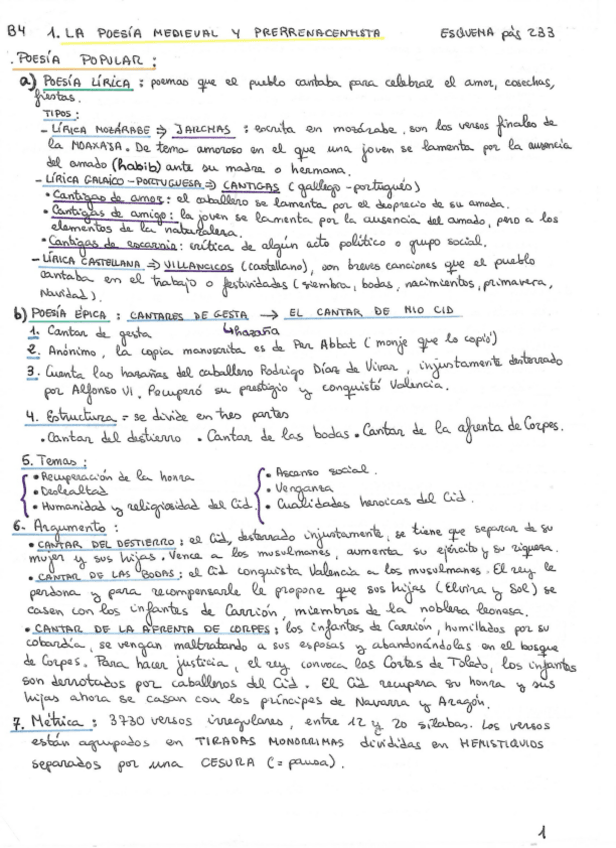 B4 1. LA POESÍA MEDIEVAL Y PRERRENACENTISTA ESQUEMA pág 233
. POESÍA POPULAR :
a) POESÍA LÍRICA : poemas que el pueblo cantaba para celebrar el amor, cosechas,
fiestas.
TIPOS :
- LÍRICA MOZÁRABE ⇒ JARCHAS : escrita en mozárabe, son los versos finales de
la MOAXAJA. De tema amoroso en el que una joven se lamenta por la ausencia
del amado (habib) ante su madre o hermana.
- LÍRICA GALAICO-PORTUGUESA ⇒ CANTIGAS (gallego-portugués)
• Cantigas de amor: el caballero se lamenta por el desprecio de su amada.
• Cantigas de amigo: la joven se lamenta por la ausencia del amado, pero a los
elementos de la naturaleza.
• Cantigas de escarnio: crítica de algún acto político o grupo social.
- LÍRICA CASTELLANA ⇒ VILLANCICOS (castellano), son breves canciones que el pueblo
cantaba en el trabajo o festividades (siembra, bodas, nacimientos, primavera,
Navidad).
b) POESÍA ÉPICA : CANTARES DE GESTA → EL CANTAR DE MIO CID
1. Cantar de gesta ↳ hazaña
2. Anónimo, la copia manuscrita es de Per Abbat (monje que lo copió)
3. Cuenta las hazañas del caballero Rodrigo Díaz de Vivar, injustamente desterrado
por Alfonso VI. Recuperó su prestigio y conquistó Valencia.
4. Estructura = se divide en tres partes
• Cantar del destierro • Cantar de las bodas • Cantar de la afrenta de Corpes.
5. Temas :
• Recuperación de la honra • Ascenso social.
• Deslealtad • Venganza
• Humanidad y religiosidad del Cid • Cualidades heroicas del Cid.
6. Argumento :
• CANTAR DEL DESTIERRO : el Cid, desterrado injustamente, se tiene que separar de su
mujer y sus hijas. Vence a los musulmanes, aumenta su ejército y su riqueza.
• CANTAR DE LAS BODAS : el Cid conquista Valencia a los musulmanes. El rey le
perdona y para recompensarle le propone que sus hijas (Elvira y Sol) se
casen con los infantes de Carrión, miembros de la nobleza leonesa.
• CANTAR DE LA AFRENTA DE CORPES : los infantes de Carrión, humillados por su
cobardía, se vengan maltratando a sus esposas y abandonándolas en el bosque
de Corpes. Para hacer justicia, el rey convoca las Cortes de Toledo, los infantes
son derrotados por caballeros del Cid. El Cid recupera su honra y sus
hijas ahora se casan con los príncipes de Navarra y Aragón.
7. Métrica : 3730 versos irregulares, entre 12 y 20 sílabas. Los versos
están agrupados en TIRADAS MONORRIMAS divididas en HEMISTIQUIOS
separados por una CESURA (= pausa).
1